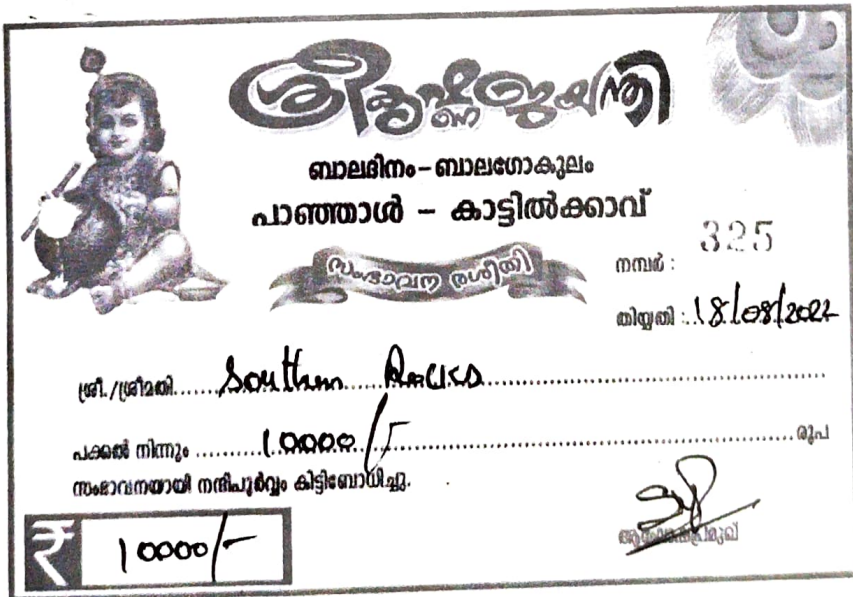 ശ്രീകൃഷ്ണജയന്തി
ബാലദിനം-ബാലഗോകുലം
പാഞ്ഞാൾ - കാട്ടിൽക്കാവ്
സംഭാവന രശീതി
നമ്പർ : 325
തിയ്യതി : 18/08/2022
ശ്രീ./ശ്രീമതി Southern Rocks
പക്കൽ നിന്നും 10000/- രൂപ
സംഭാവനയായി നന്ദിപൂർവ്വം കിട്ടിബോധിച്ചു.
₹ 10000/-
ആഘോഷപ്രമുഖ്